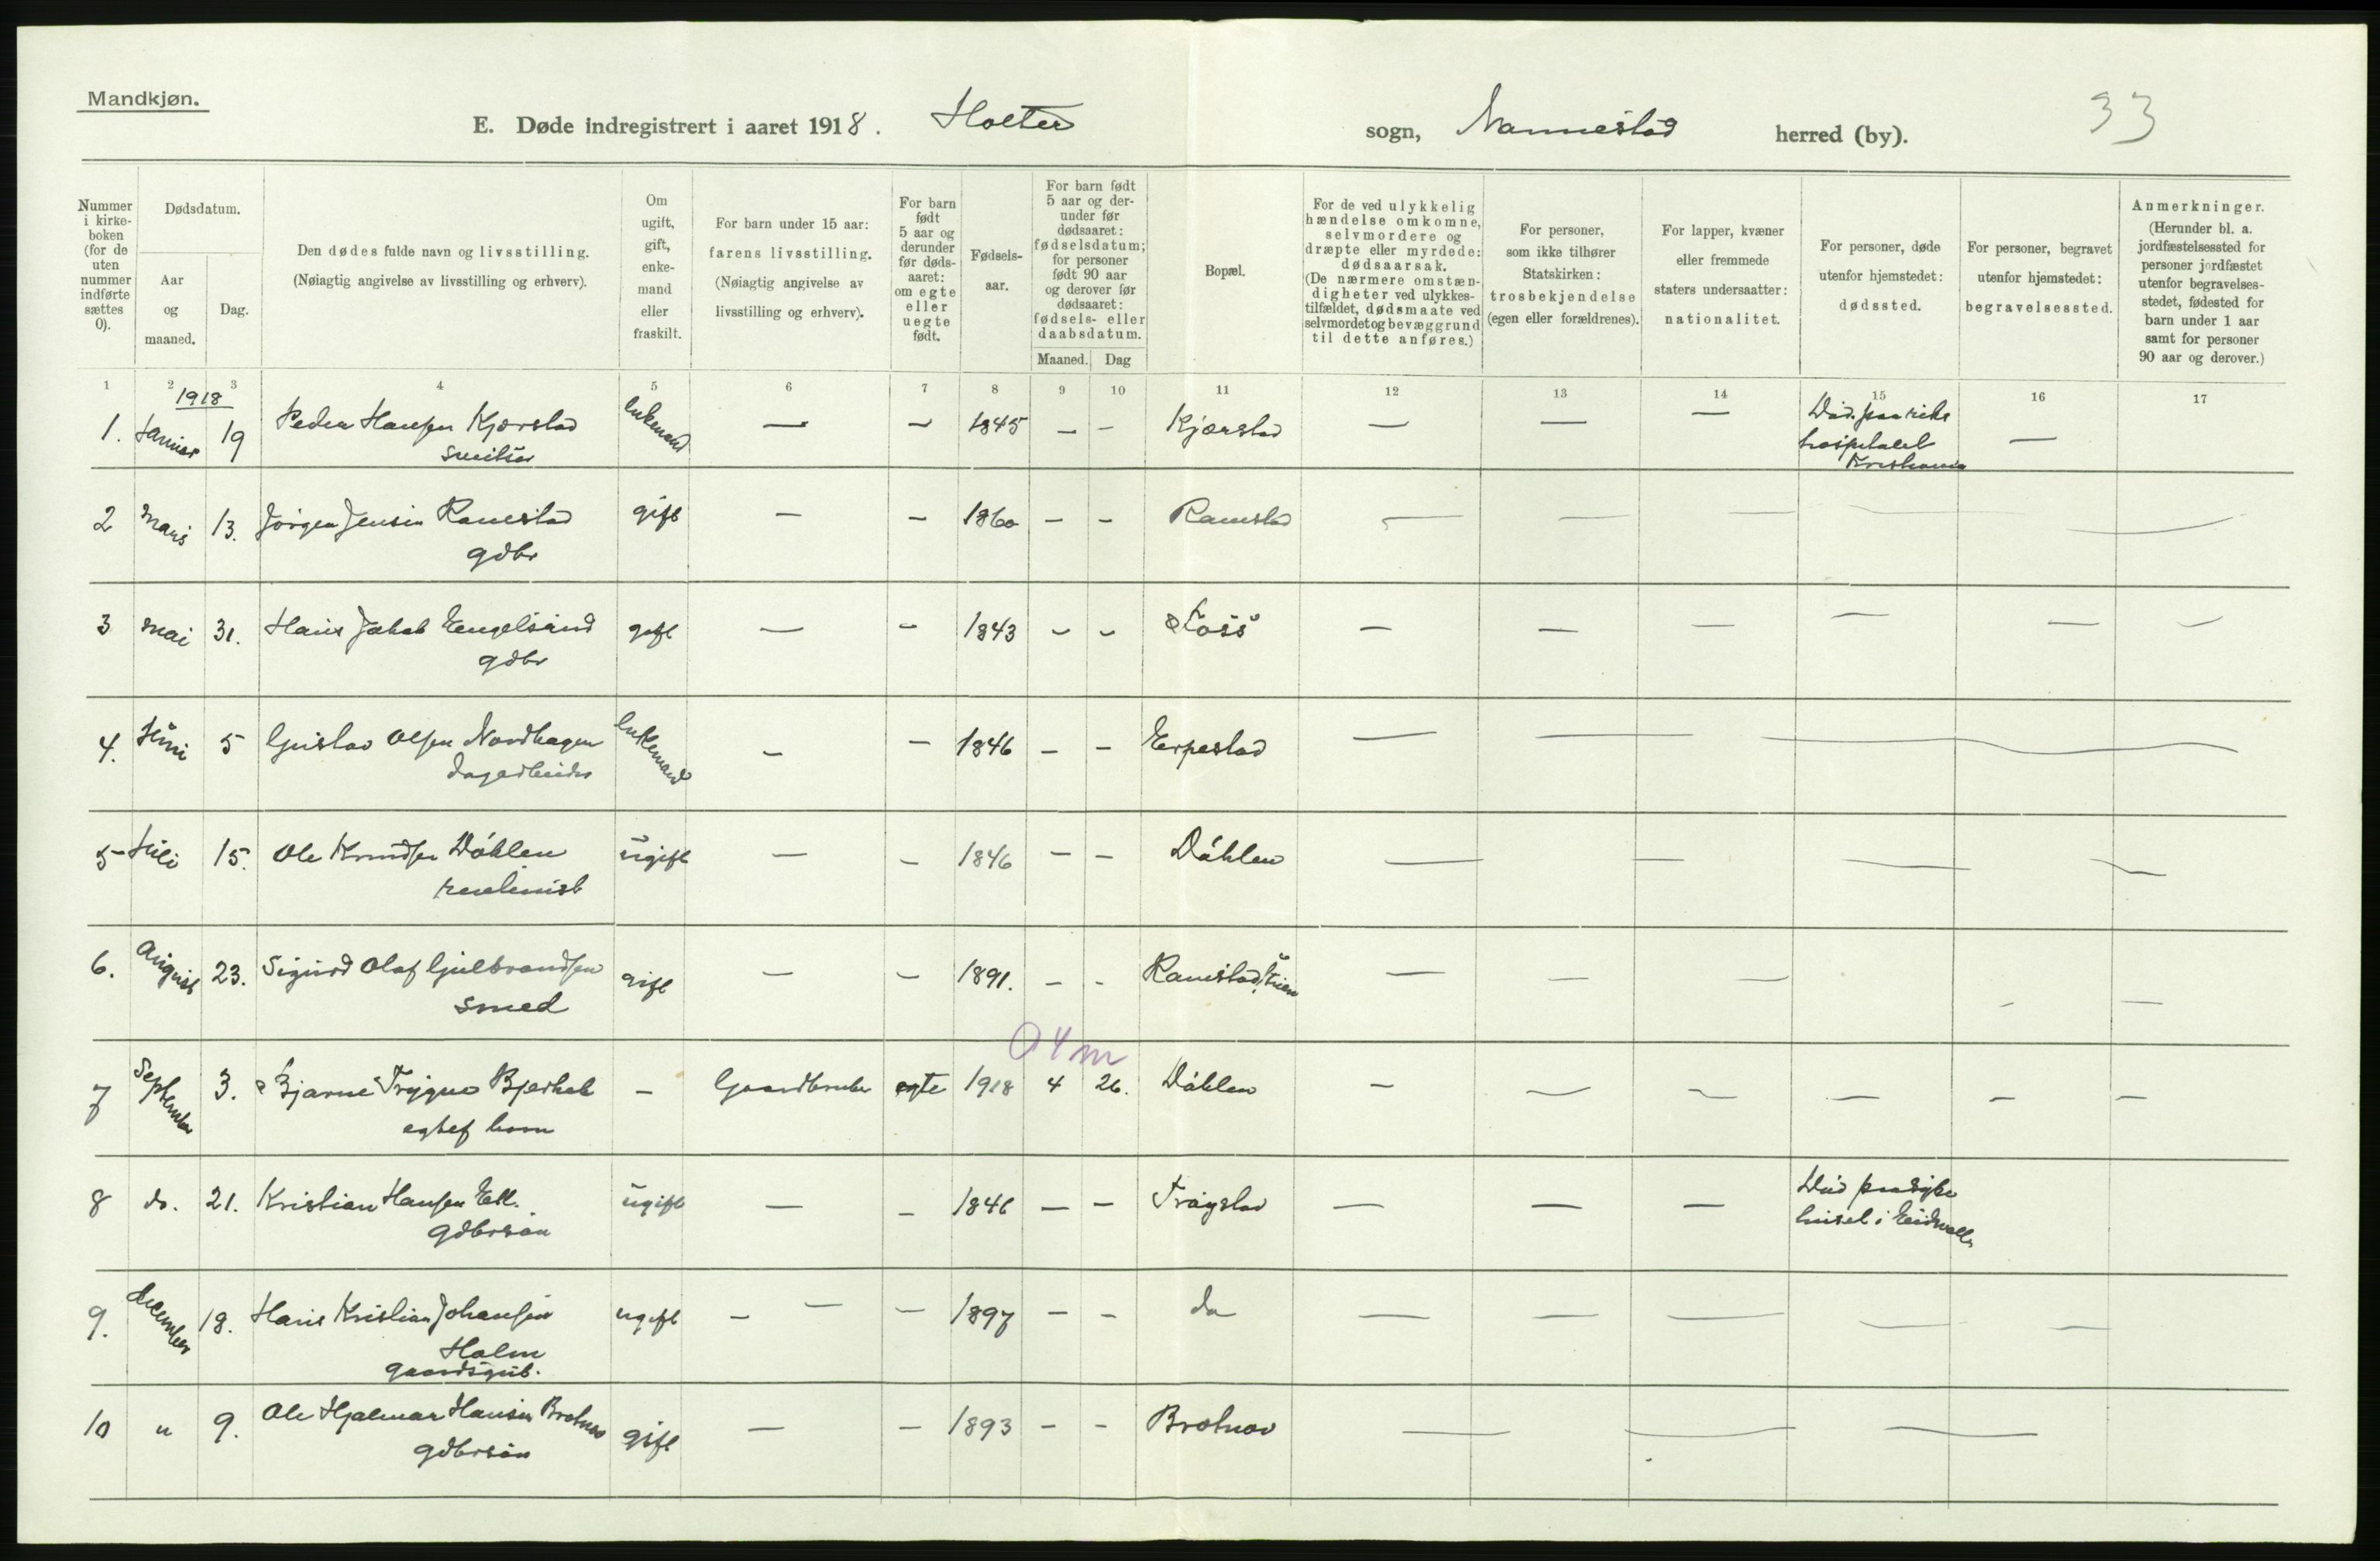 Mandkjøn.
E. Døde indregistrert i aaret 1918. Holter sogn, Nannestad herred (by). 33
Nummer i kirke- boken (for de uten nummer indførte sættes 0).
Dødsdatum.
Aar og maaned.
Dag.
Den dødes fulde navn og livsstilling.
(Nøiagtig angivelse av livsstilling og erhverv).
Om ugift, gift, enke- mand eller fraskilt.
For barn under 15 aar: farens livsstilling.
(Nøiagtig angivelse av livsstilling og erhverv).
For barn født 5 aar og derunder før døds- aaret: om egte eller uegte født.
Fødsels- aar.
For barn født 5 aar og der- under før dødsaaret: fødselsdatum; for personer født 90 aar og derover før dødsaaret: fødsels- eller daabsdatum.
Maaned. Dag
Bopæl.
For de ved ulykkelig hændelse omkomne, selvmordere og dræpte eller myrdede: dødsaarsak.
(De nærmere omstæn- digheter ved ulykkes- tilfældet, dødsmaate ved selvmordet og bevæggrund til dette anføres.)
For personer, som ikke tilhører Statskirken: trosbekjendelse (egen eller forældrenes).
For lapper, kvæner eller fremmede staters undersaatter: nationalitet.
For personer, døde utenfor hjemstedet: dødssted.
For personer, begravet utenfor hjemstedet: begravelsessted.
Anmerkninger.
(Herunder bl. a. jordfæstelsessted for personer jordfæstet utenfor begravelses- stedet, fødested for barn under 1 aar samt for personer 90 aar og derover.)
1 2 3 4 5 6 7 8 9 10 11 12 13 14 15 16 17
1918
1. Januar 19 Peder Hansen Kjærstad enkemand — — 1845 — — Kjærstad — — — Død paa riks
hospitalet
Kristiania —
2 Mars 13. Jørgen Jensen Ramstad gift — — 1860 — — Ramstad — — — — —
gdbr
3 Mai 31. Hans Jakob Engelsand gift — — 1843 — — — — — — — —
gdbr
4. Juni 5 Gustav Olsen Nordhagen enkemand — — 1846 — — Erpestad — — —
dagarbeider
5 Juli 15. Ole Knudsen Døhlen ugift — — 1846 — — Døhlen — — — —
6. August 23. Sigurd Olaf Gulbrandsen gift — — 1891. — — Ramstad — — — — —
smed
0 4 m
7 September 3. Bjarne Trygve Bjerke gaardbruker egte 1918 4 26. Døhlen — — — — — —
8 do. 21. Kristian Hansen ugift — — 1846 — — — — — Død paa syke
huset i Eidsvoll
gdbrsøn
9. December 18. Hans Kristian Johansen ugift — — — 1897 — — do — — — — —
Holm
gaardsgut.
10 " 9. Ole Hjalmar Hansen Brotnov gift — — 1893 — — Brotnov — — —
gdbrsøn